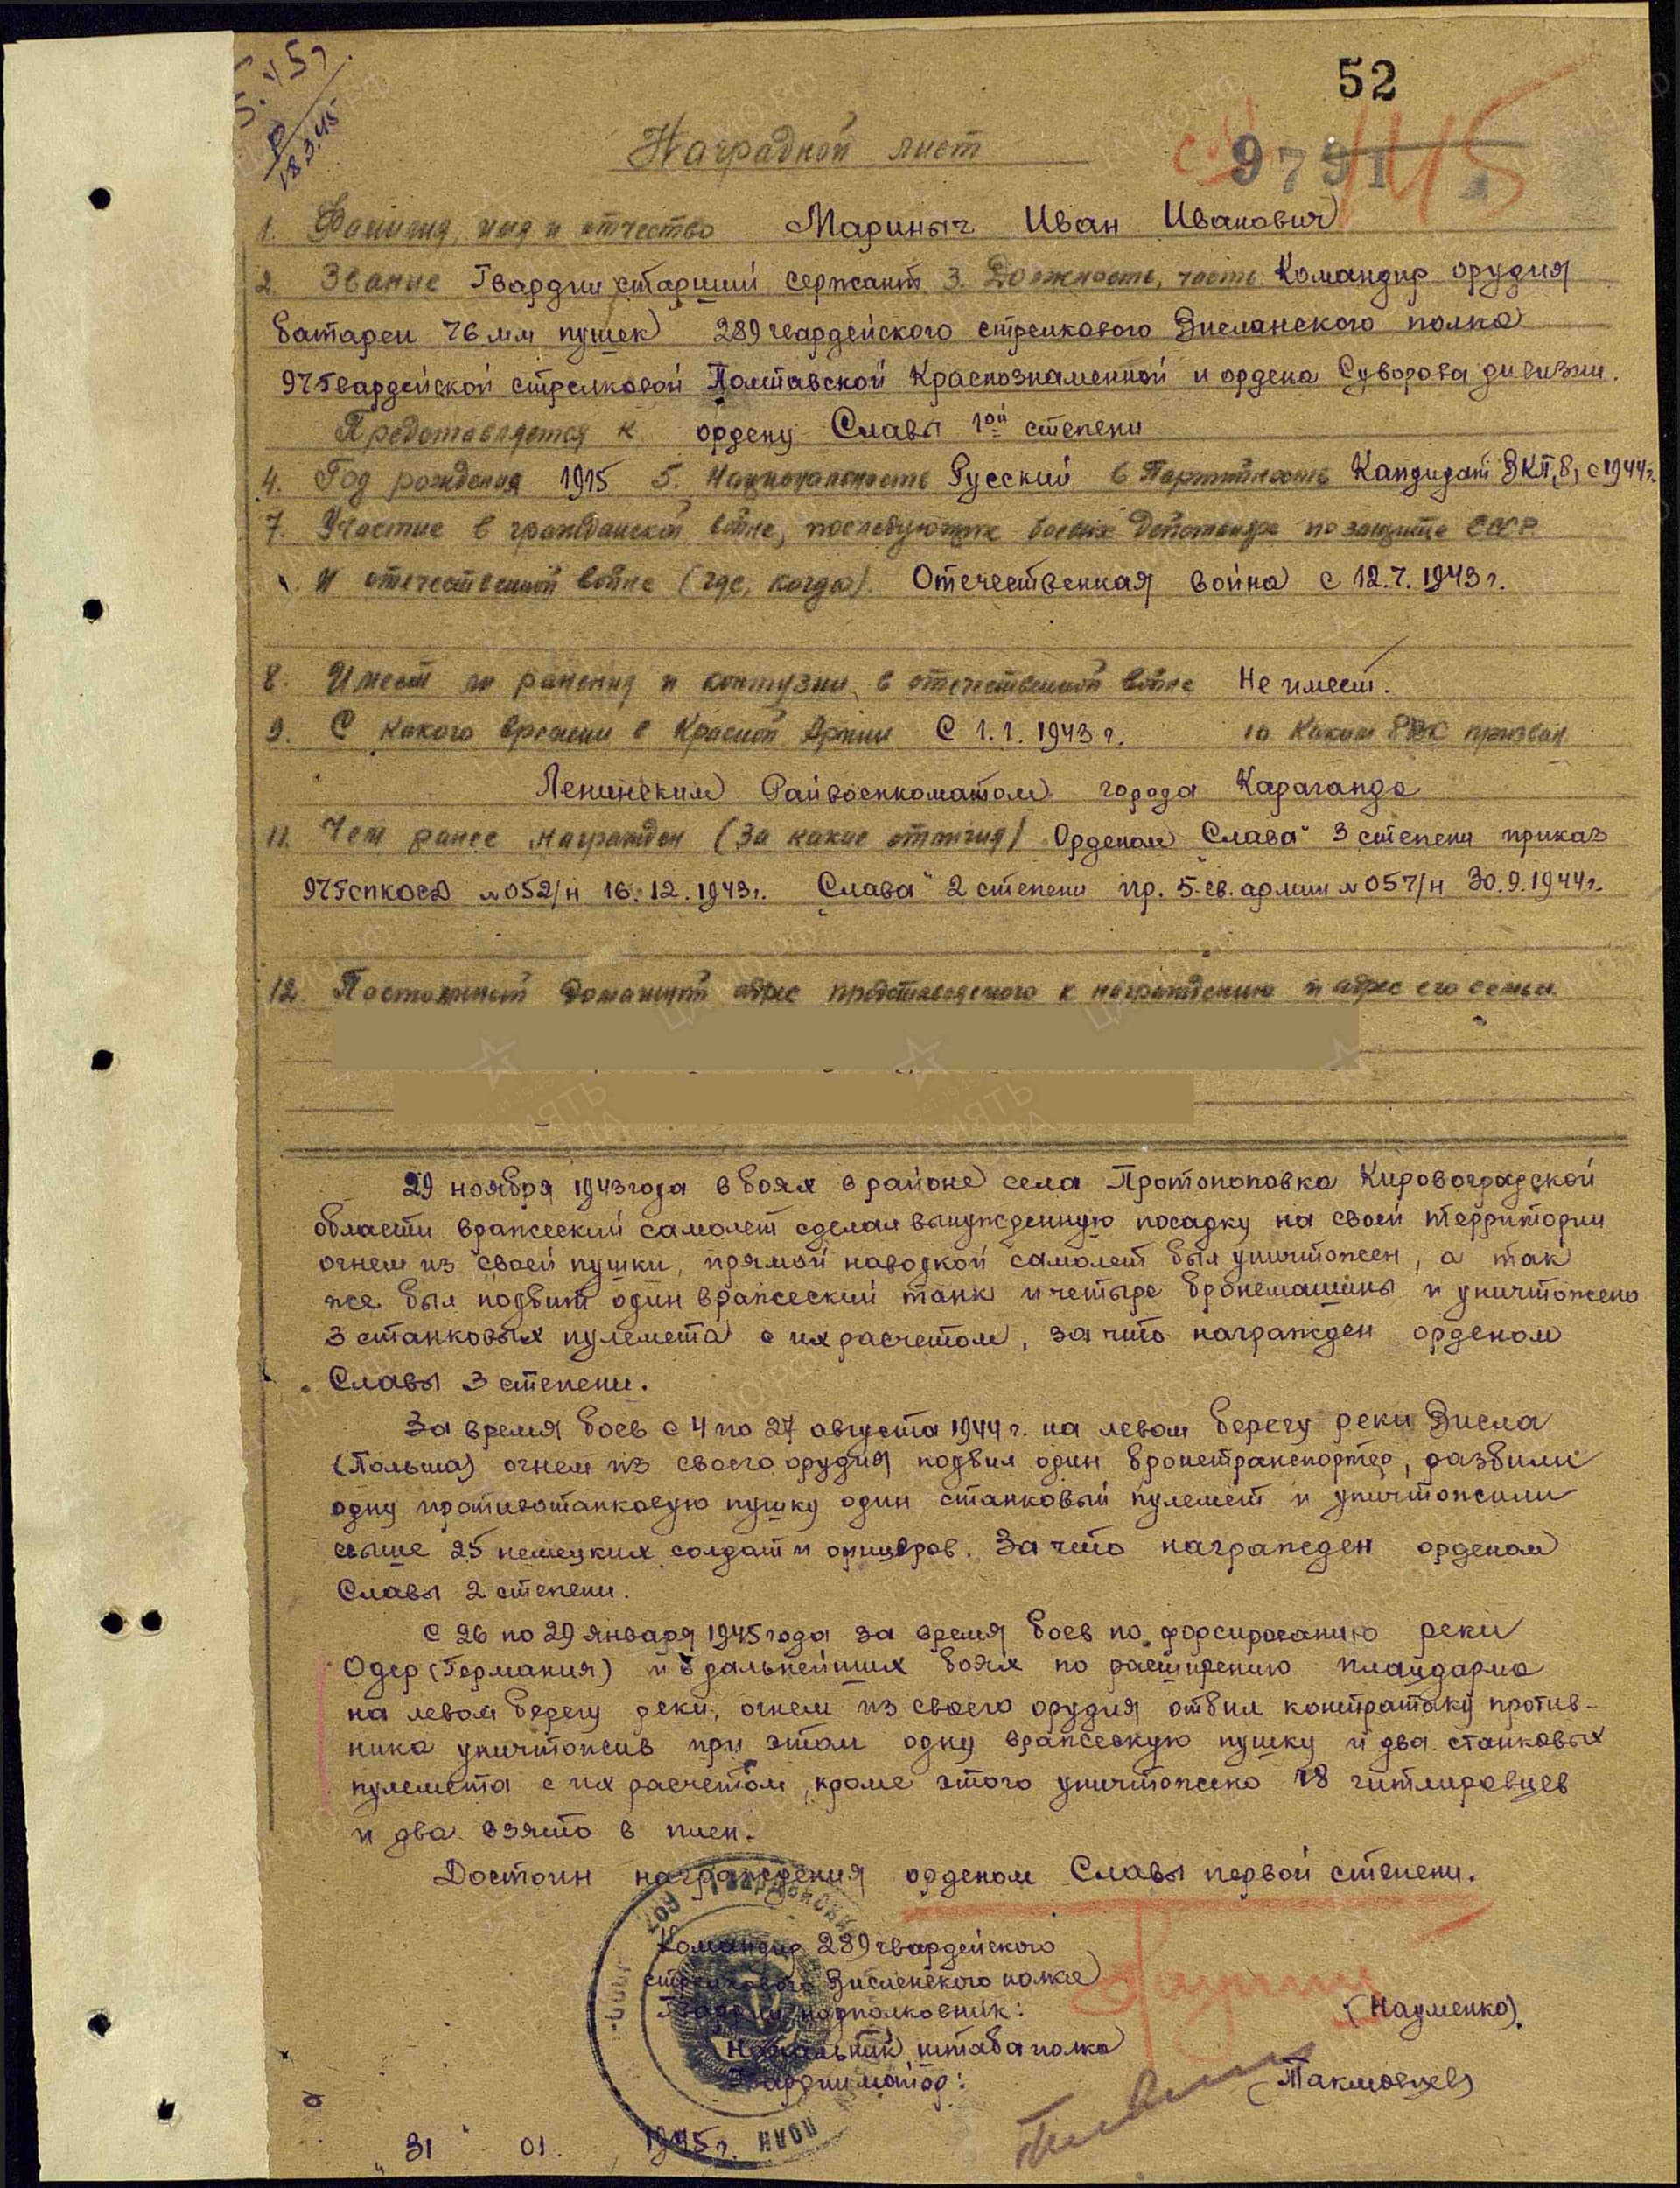 52
18.3.45
9791
Наградной лист
1. Фамилия, имя и отчество Мариныч Иван Иванович
2. Звание Гвардии старший сержант 3. Должность, часть Командир орудия
батареи 76 мм пушек 289 гвардейского стрелкового Висланского полка
97 Гвардейской стрелковой Полтавской Краснознаменной и ордена Суворова дивизии.
Представляется к ордену Славы 1ой степени
4. Год рождения 1915 5. Национальность Русский 6 Партийность Кандидат ВКП(б) с 1944г.
7. Участие в гражданской войне, последующих боевых действиях по защите СССР
и отечественной войне (где, когда). Отечественная война с 12.7.1943г.
8. Имеет ли ранения и контузии в отечественной войне Не имеет.
9. С какого времени в Красной Армии С 1.1.1943г. 10 Каким РВК призван
Ленинским Райвоенкоматом города Караганда
11. Чем ранее награжден (за какие отличия) Орденом „Слава" 3 степени приказ
97 Гспкосд №052/н 16.12.1943г. „Слава" 2 степени пр. 5 гв. армии №057/н 30.9.1944г.
12. Постоянный домашний адрес представляемого к награждению и адрес его семьи
29 ноября 1943 года в боях в районе села Протопоповка Кировоградской
области вражеский самолет сделал вынужденную посадку на своей территории
огнем из своей пушки, прямой наводкой самолет был уничтожен, а так
же был подбит один вражеский танк и четыре бронемашины и уничтожено
3 станковых пулемета с их расчетом, за что награжден орденом
Славы 3 степени.
За время боев с 4 по 27 августа 1944г. на левом берегу реки Висла
(Польша) огнем из своего орудия подбил один бронетранспортер, разбили
одну противотанковую пушку один станковый пулемет и уничтожили
свыше 25 немецких солдат и офицеров. За что награжден орденом
Славы 2 степени.
С 26 по 29 января 1945 года за время боев по форсированию реки
Одер (Германия) и в дальнейших боях по расширению плацдарма
на левом берегу реки, огнем из своего орудия отбил контратаку против-
ника уничтожив при этом одну вражескую пушку и два станковых
пулемета с их расчетом, кроме этого уничтожено 18 гитлеровцев
и два взято в плен.
Достоин награждения орденом Славы первой степени.
Командир 289 гвардейского
стрелкового Висленского полка
Гвардии подполковник: (Науменко).
Начальник штаба полка
Гвардии майор: (Такмовцев)
„31 " 01. 1945г.